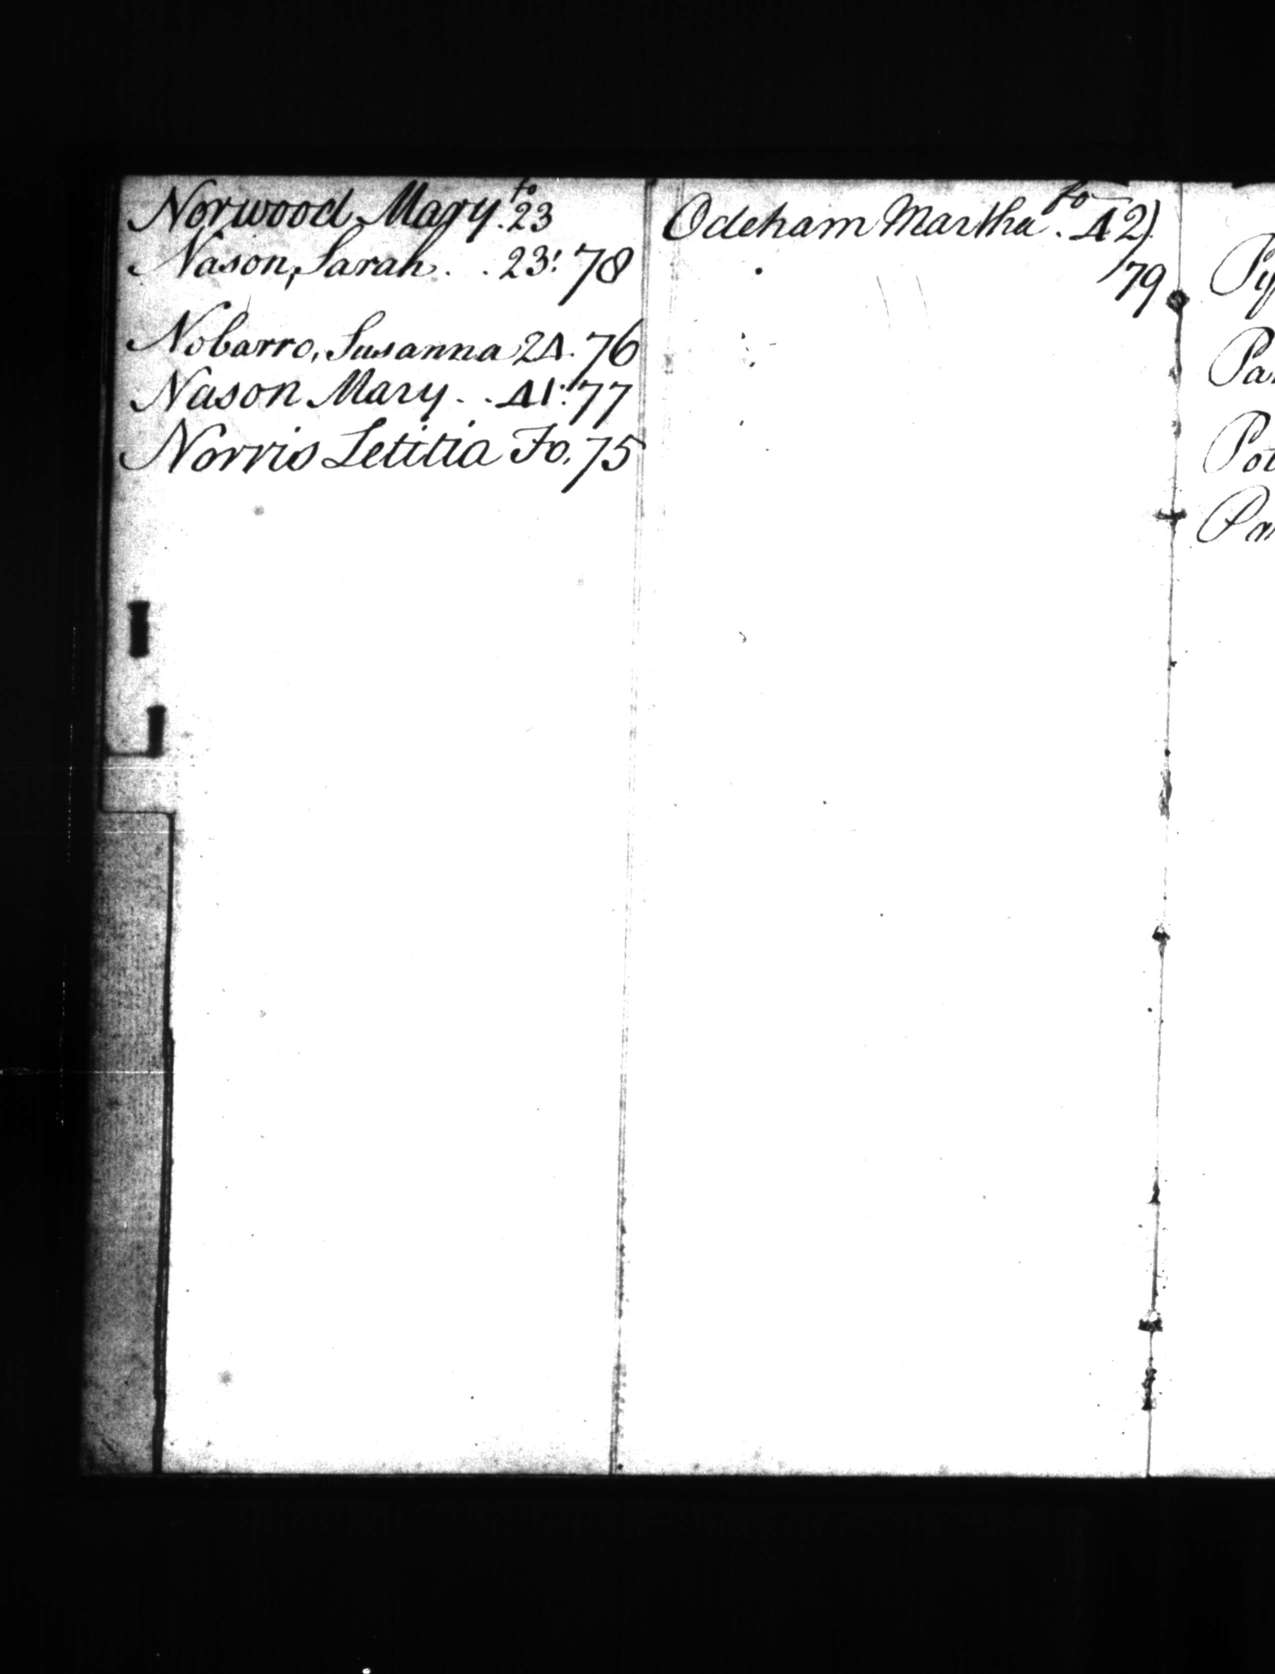 fo
Norwood Mary. 23
Nason, Sarah. . 23: 78
Nobarro, Susanna 24. 76
Nason Mary . . 41: 77
Norris Letitia Fo. 75
fo
Odeham Martha . 42)
79